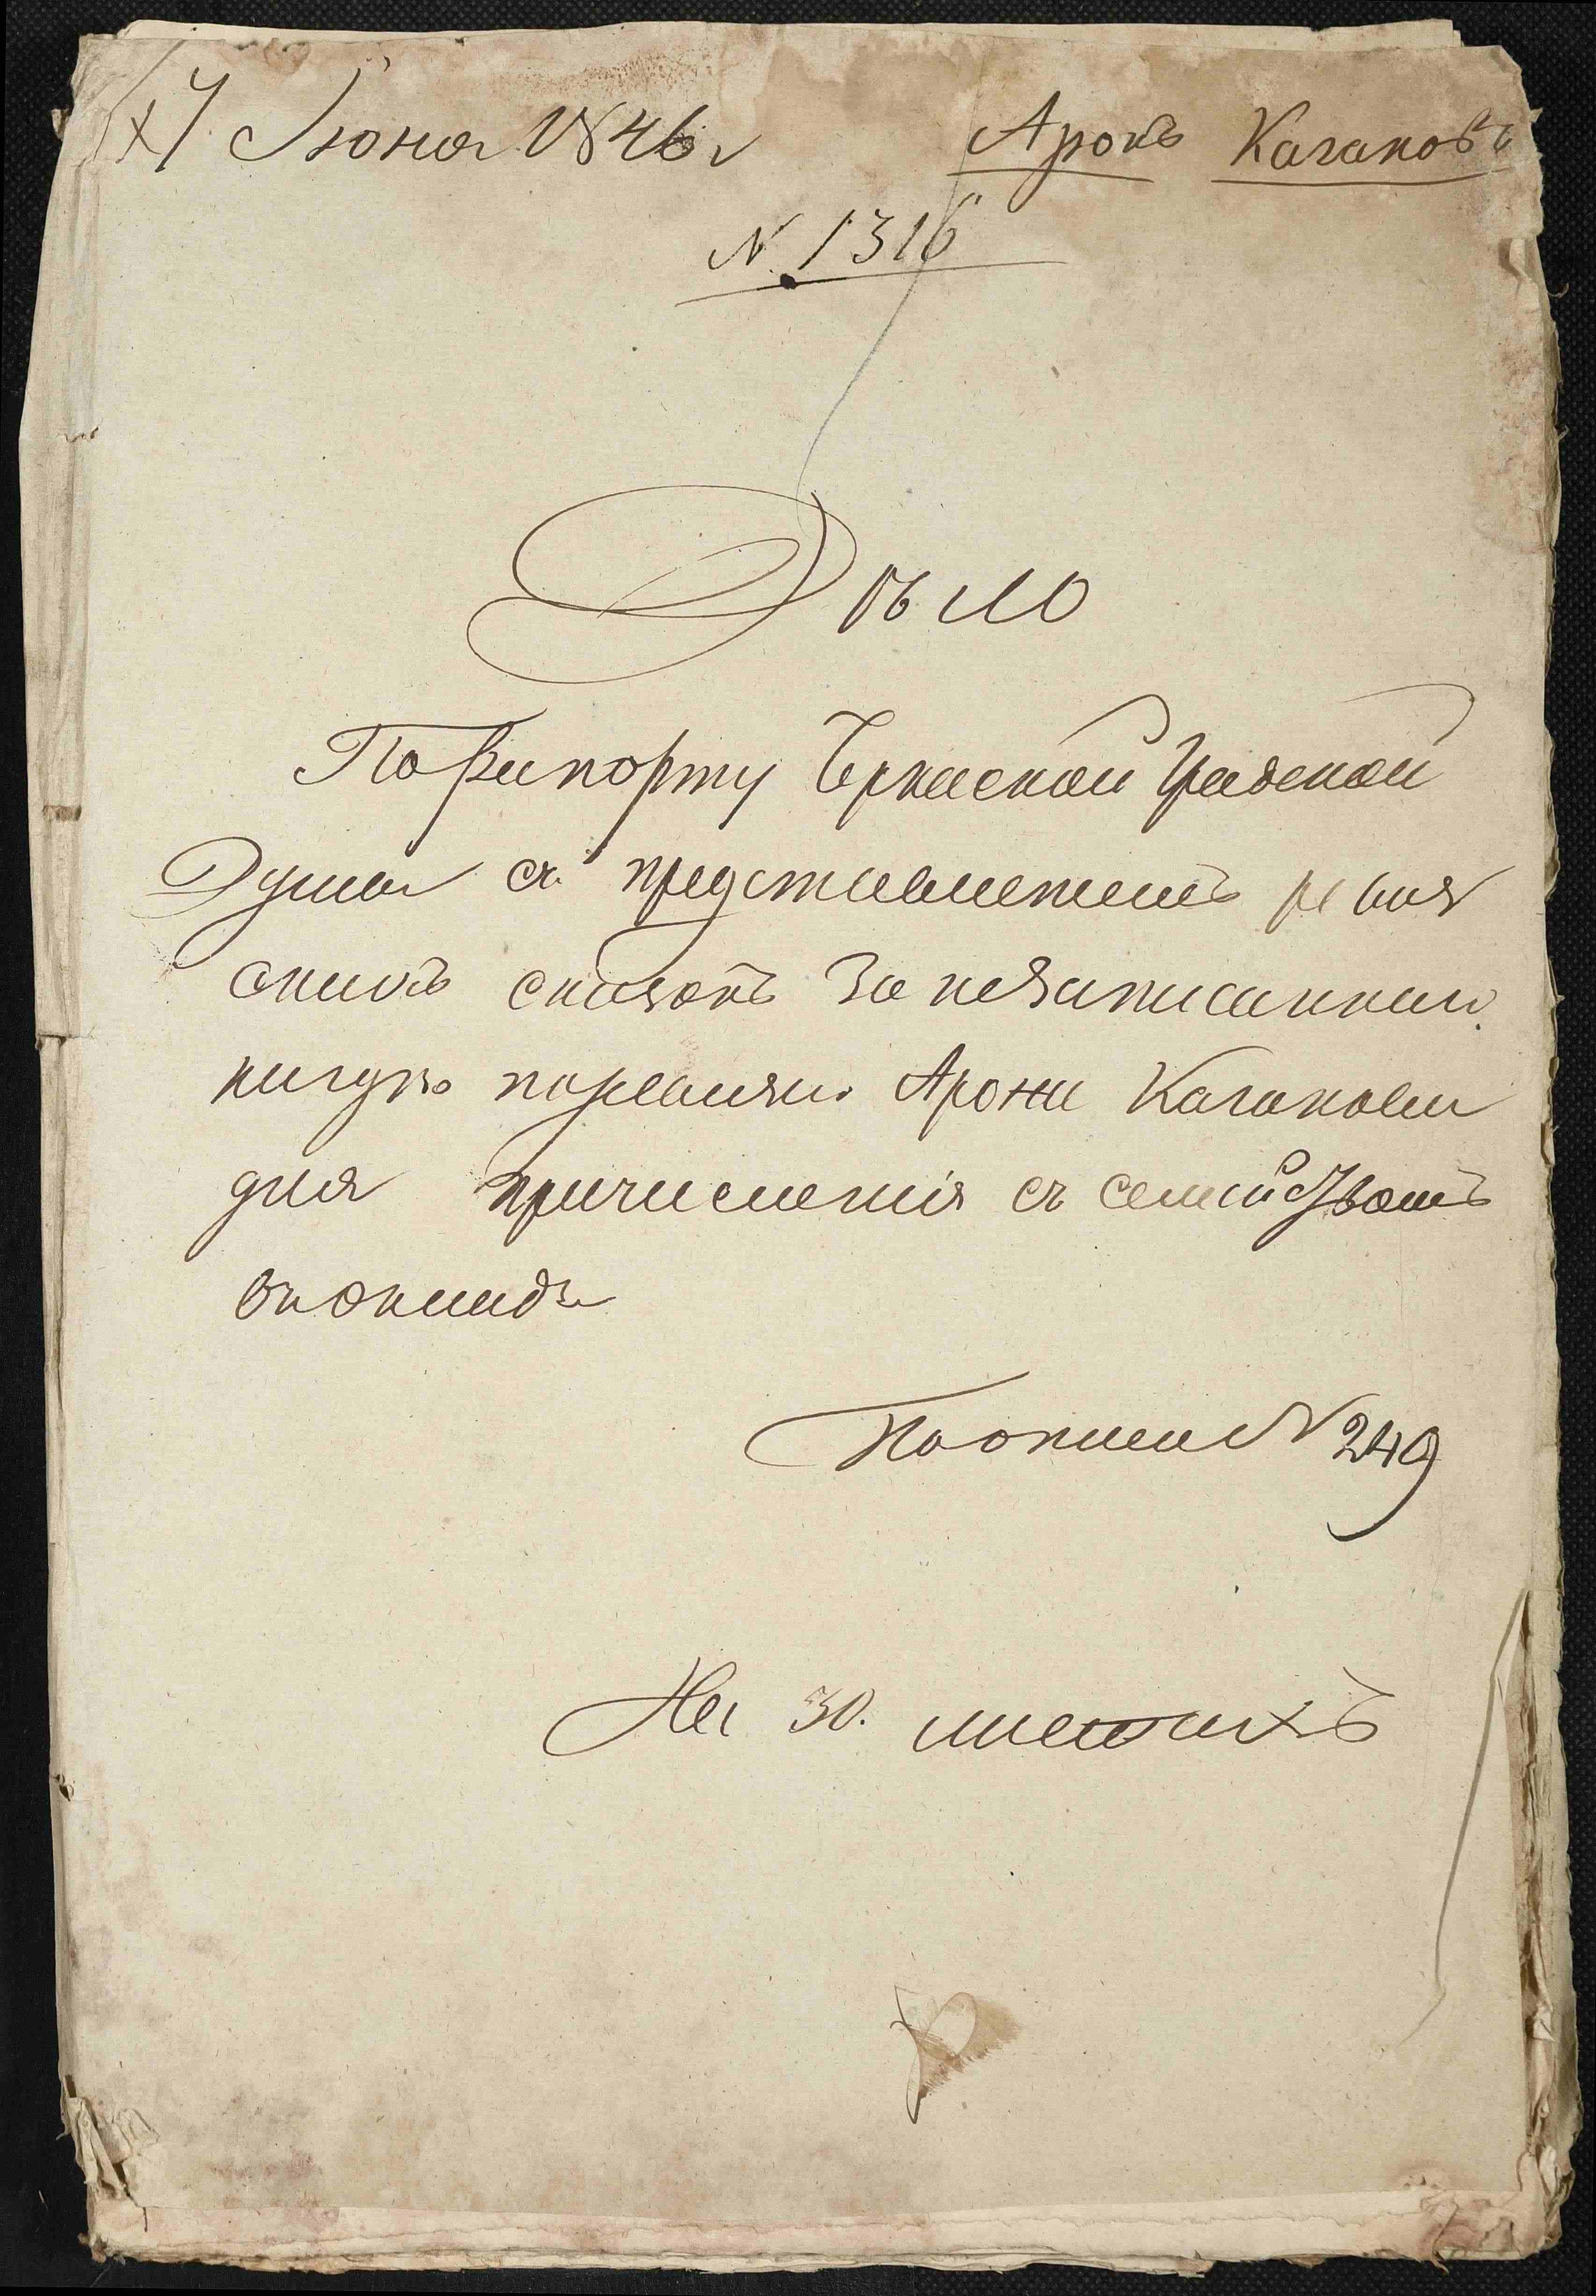 7 Июня 1846 г
Аронъ Кагановъ
N. 1316
Дѣло
По Рапорту Черкаской Градской
Думы съ представленіемъ ревиз
скихъ сказокъ за незаписаннаго
нигдѣ по ревизіи Арона Каганова
для причисленія съ семействомъ
въ окладъ
По описи N 249
На 30. листахъ